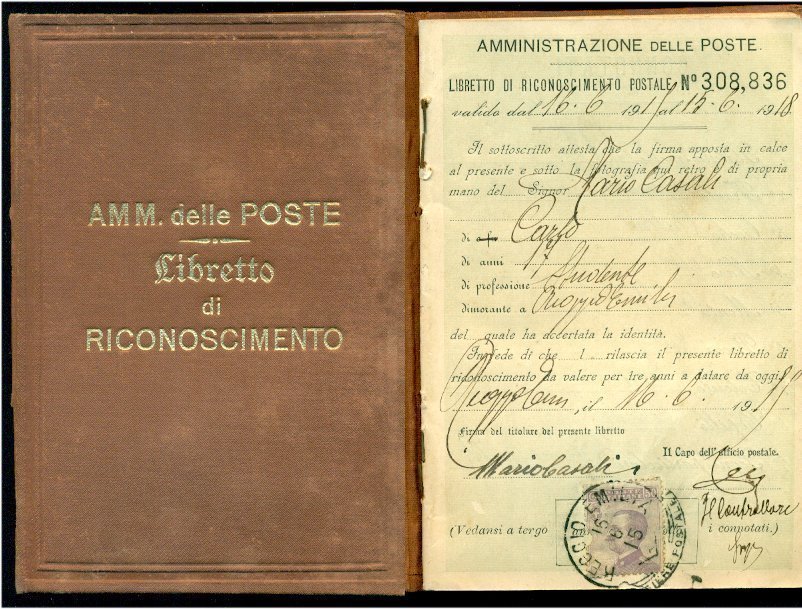 AMM. delle POSTE
Libretto
di
RICONOSCIMENTO
AMMINISTRAZIONE DELLE POSTE.
LIBRETTO DI RICONOSCIMENTO POSTALE Nº 308,836
valido dal 16-6 1915 al 15-6- 1918
Il sottoscritto attesta che la firma apposta in calce
al presente e sotto la fotografia sul retro è di propria
mano del Signor Mario Casali
di a fu Carlo
di anni 17
di professione Studente
dimorante a Reggio Emilia
del quale ha accertata la identità.
In fede di che l rilascia il presente libretto di
riconoscimento da valere per tre anni a datare da oggi.
Reggio Em, il 16-6- 1915
Firma del titolare del presente libretto
Il Capo dell'ufficio postale.
Mario Casali
Il Controllore
(Vedansi a tergo i connotati.)
REGGIO EMILIA
16 6 15